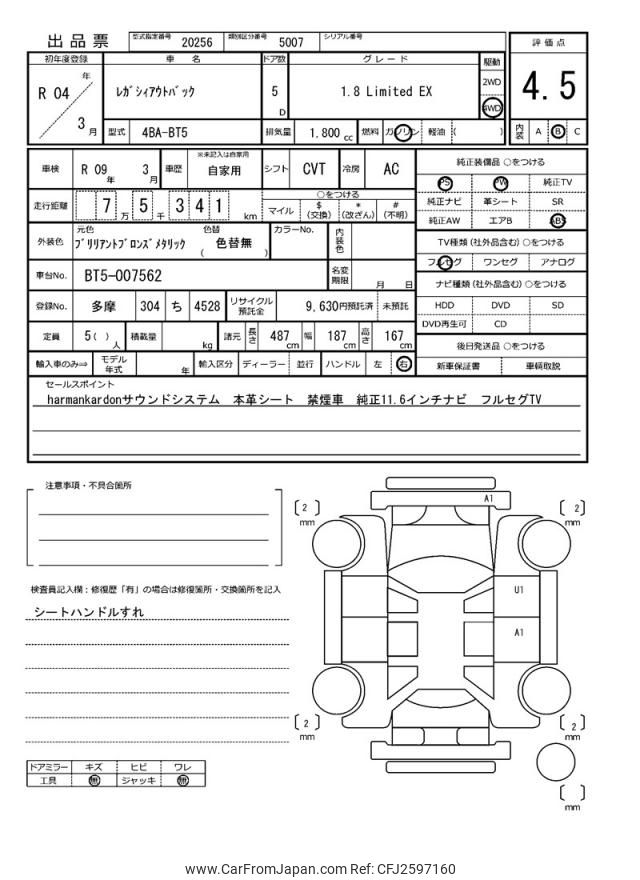 出品票 型式指定番号 20256 類別区分番号 5007 シリアル番号
初年度登録 車名 ドア数 グレード 駆動 評価点
R 04 年 3 月 ﾚｶﾞｼｨｱｳﾄﾊﾞｯｸ 5 D 1.8 Limited EX 2WD 4WD 4.5
型式 4BA-BT5 排気量 1,800 cc 燃料 ガソリン 軽油 ( ) 内装 A B C
車検 R 09 年 3 月 車歴 ※未記入は自家用 自家用 シフト CVT 冷房 AC
走行距離 7 万 5 千 3 4 1 km ○をつける
マイル $ (交換) * (改ざん) # (不明)
外装色 元色 ﾌﾞﾘﾘｱﾝﾄﾌﾞﾛﾝｽﾞﾒﾀﾘｯｸ 色替 ( 色替無 ) カラーNo. 内装色
車台No. BT5-007562 名変期限 月 日
登録No. 多摩 304 ち 4528 リサイクル預託金 9,630円預託済 未預託
定員 5 ( ) 人 積載量 kg 諸元 長さ 487 cm 幅 187 cm 高さ 167 cm
輸入車のみ⇒ モデル年式 年 輸入区分 ディーラー 並行 ハンドル 左 右
純正装備品 ○をつける
PS PW 純正TV
純正ナビ 革シート SR
純正AW エアB ABS
TV種類 (社外品含む) ○をつける
フルセグ ワンセグ アナログ
ナビ種類 (社外品含む) ○をつける
HDD DVD SD
DVD再生可 CD
後日発送品 ○をつける
新車保証書 車輌取説
セールスポイント
harmankardonサウンドシステム 本革シート 禁煙車 純正11.6インチナビ フルセグTV
注意事項・不具合箇所
検査員記入欄：修復歴「有」の場合は修復箇所・交換箇所を記入
シートハンドルすれ
ドアミラー キズ ヒビ ワレ
工具 無 ジャッキ 無
A1
[ 2 ] mm [ 2 ] mm
U1
A1
[ 2 ] mm [ 2 ] mm
[ ] mm
www.CarFromJapan.com Ref: CFJ2597160